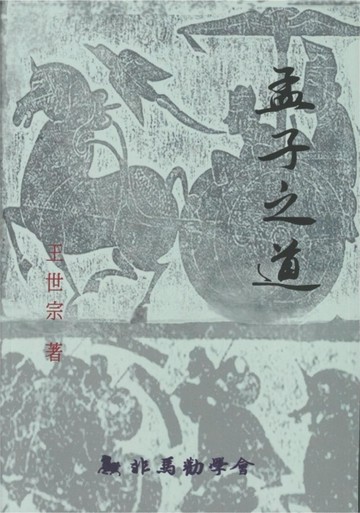 孟子之道
王世宗 著
非馬勒學會